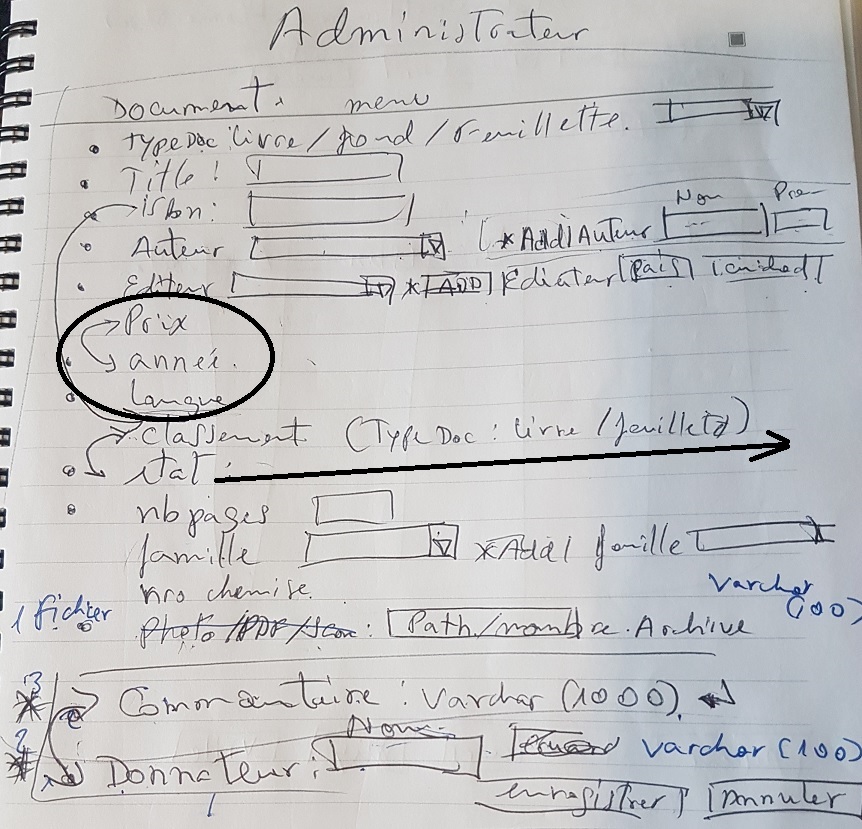 Administrateur
Document. menu
• TypeDoc: livre / fond / feuillette.
• Title:
Nom Pre
isbn:
• Auteur *Add Auteur
• Editeur * ADD Editeur Pais
Prix
année.
Langue
classement (TypeDoc: livre / feuillete)
• etat:
• nb pages
famille *Add famille
nro chemise.
varchar
1 fichier (100)
Photo /PDF/scan: Path/nombre.Archive
3
* Commentaire: varchar (1000)
2 Nom
* Donnateur: varchar (100)
1
enregistrer Annuler